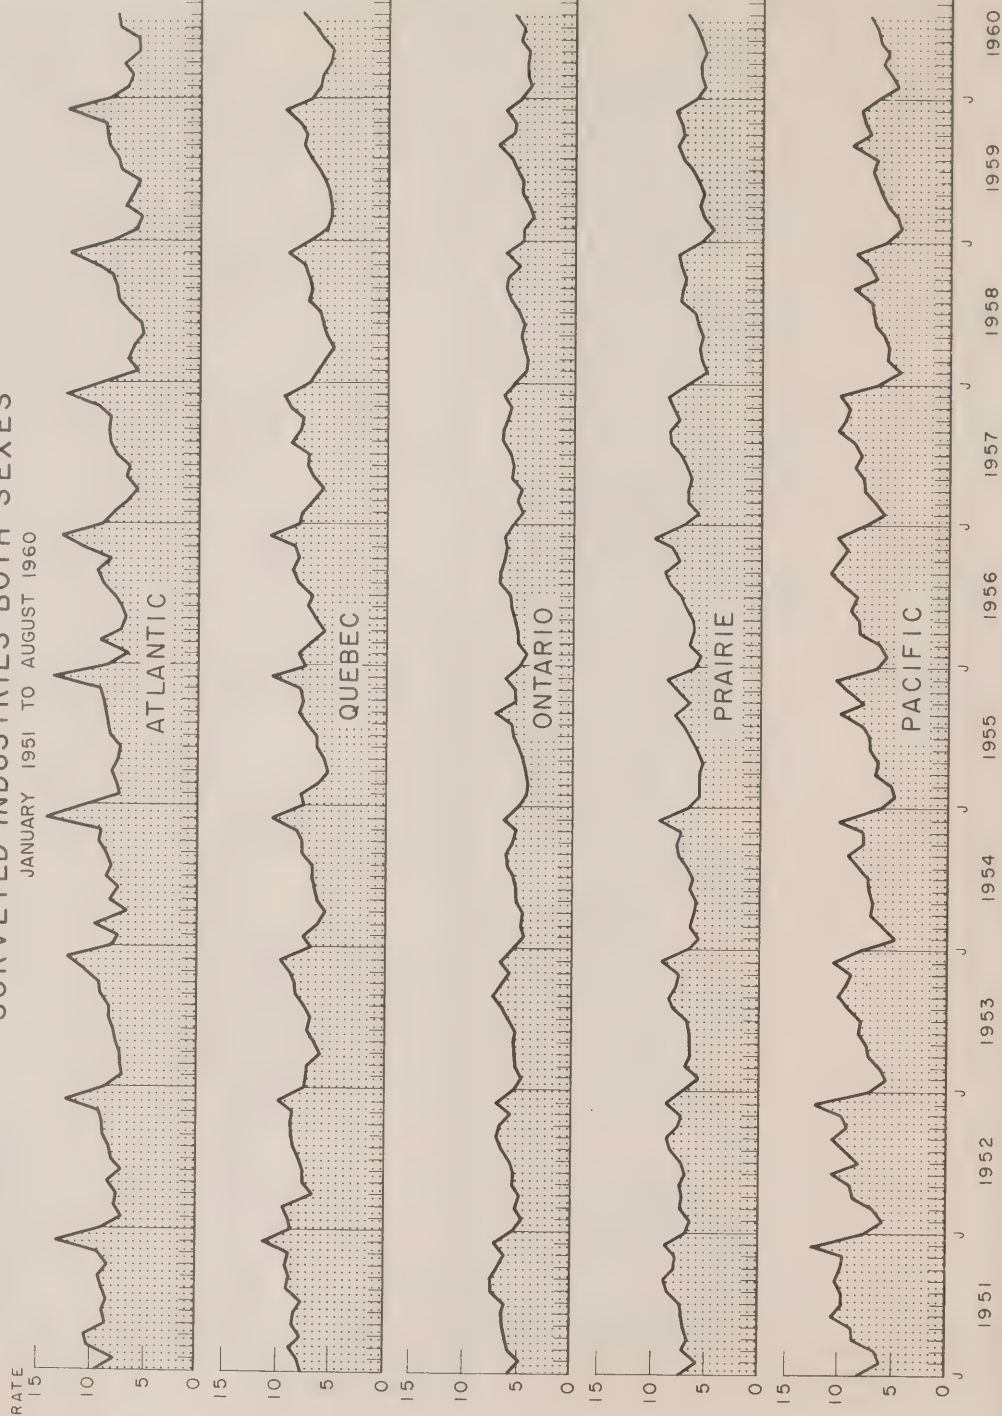 SURVEYED INDUSTRIES BOTH SEXES
JANUARY 1951 TO AUGUST 1960
RATE
15
10
5
0
ATLANTIC
15
10
5
0
QUEBEC
15
10
5
0
ONTARIO
15
10
5
0
PRAIRIE
15
10
5
0
PACIFIC
J J J J J J J J J J
1951 1952 1953 1954 1955 1956 1957 1958 1959 1960